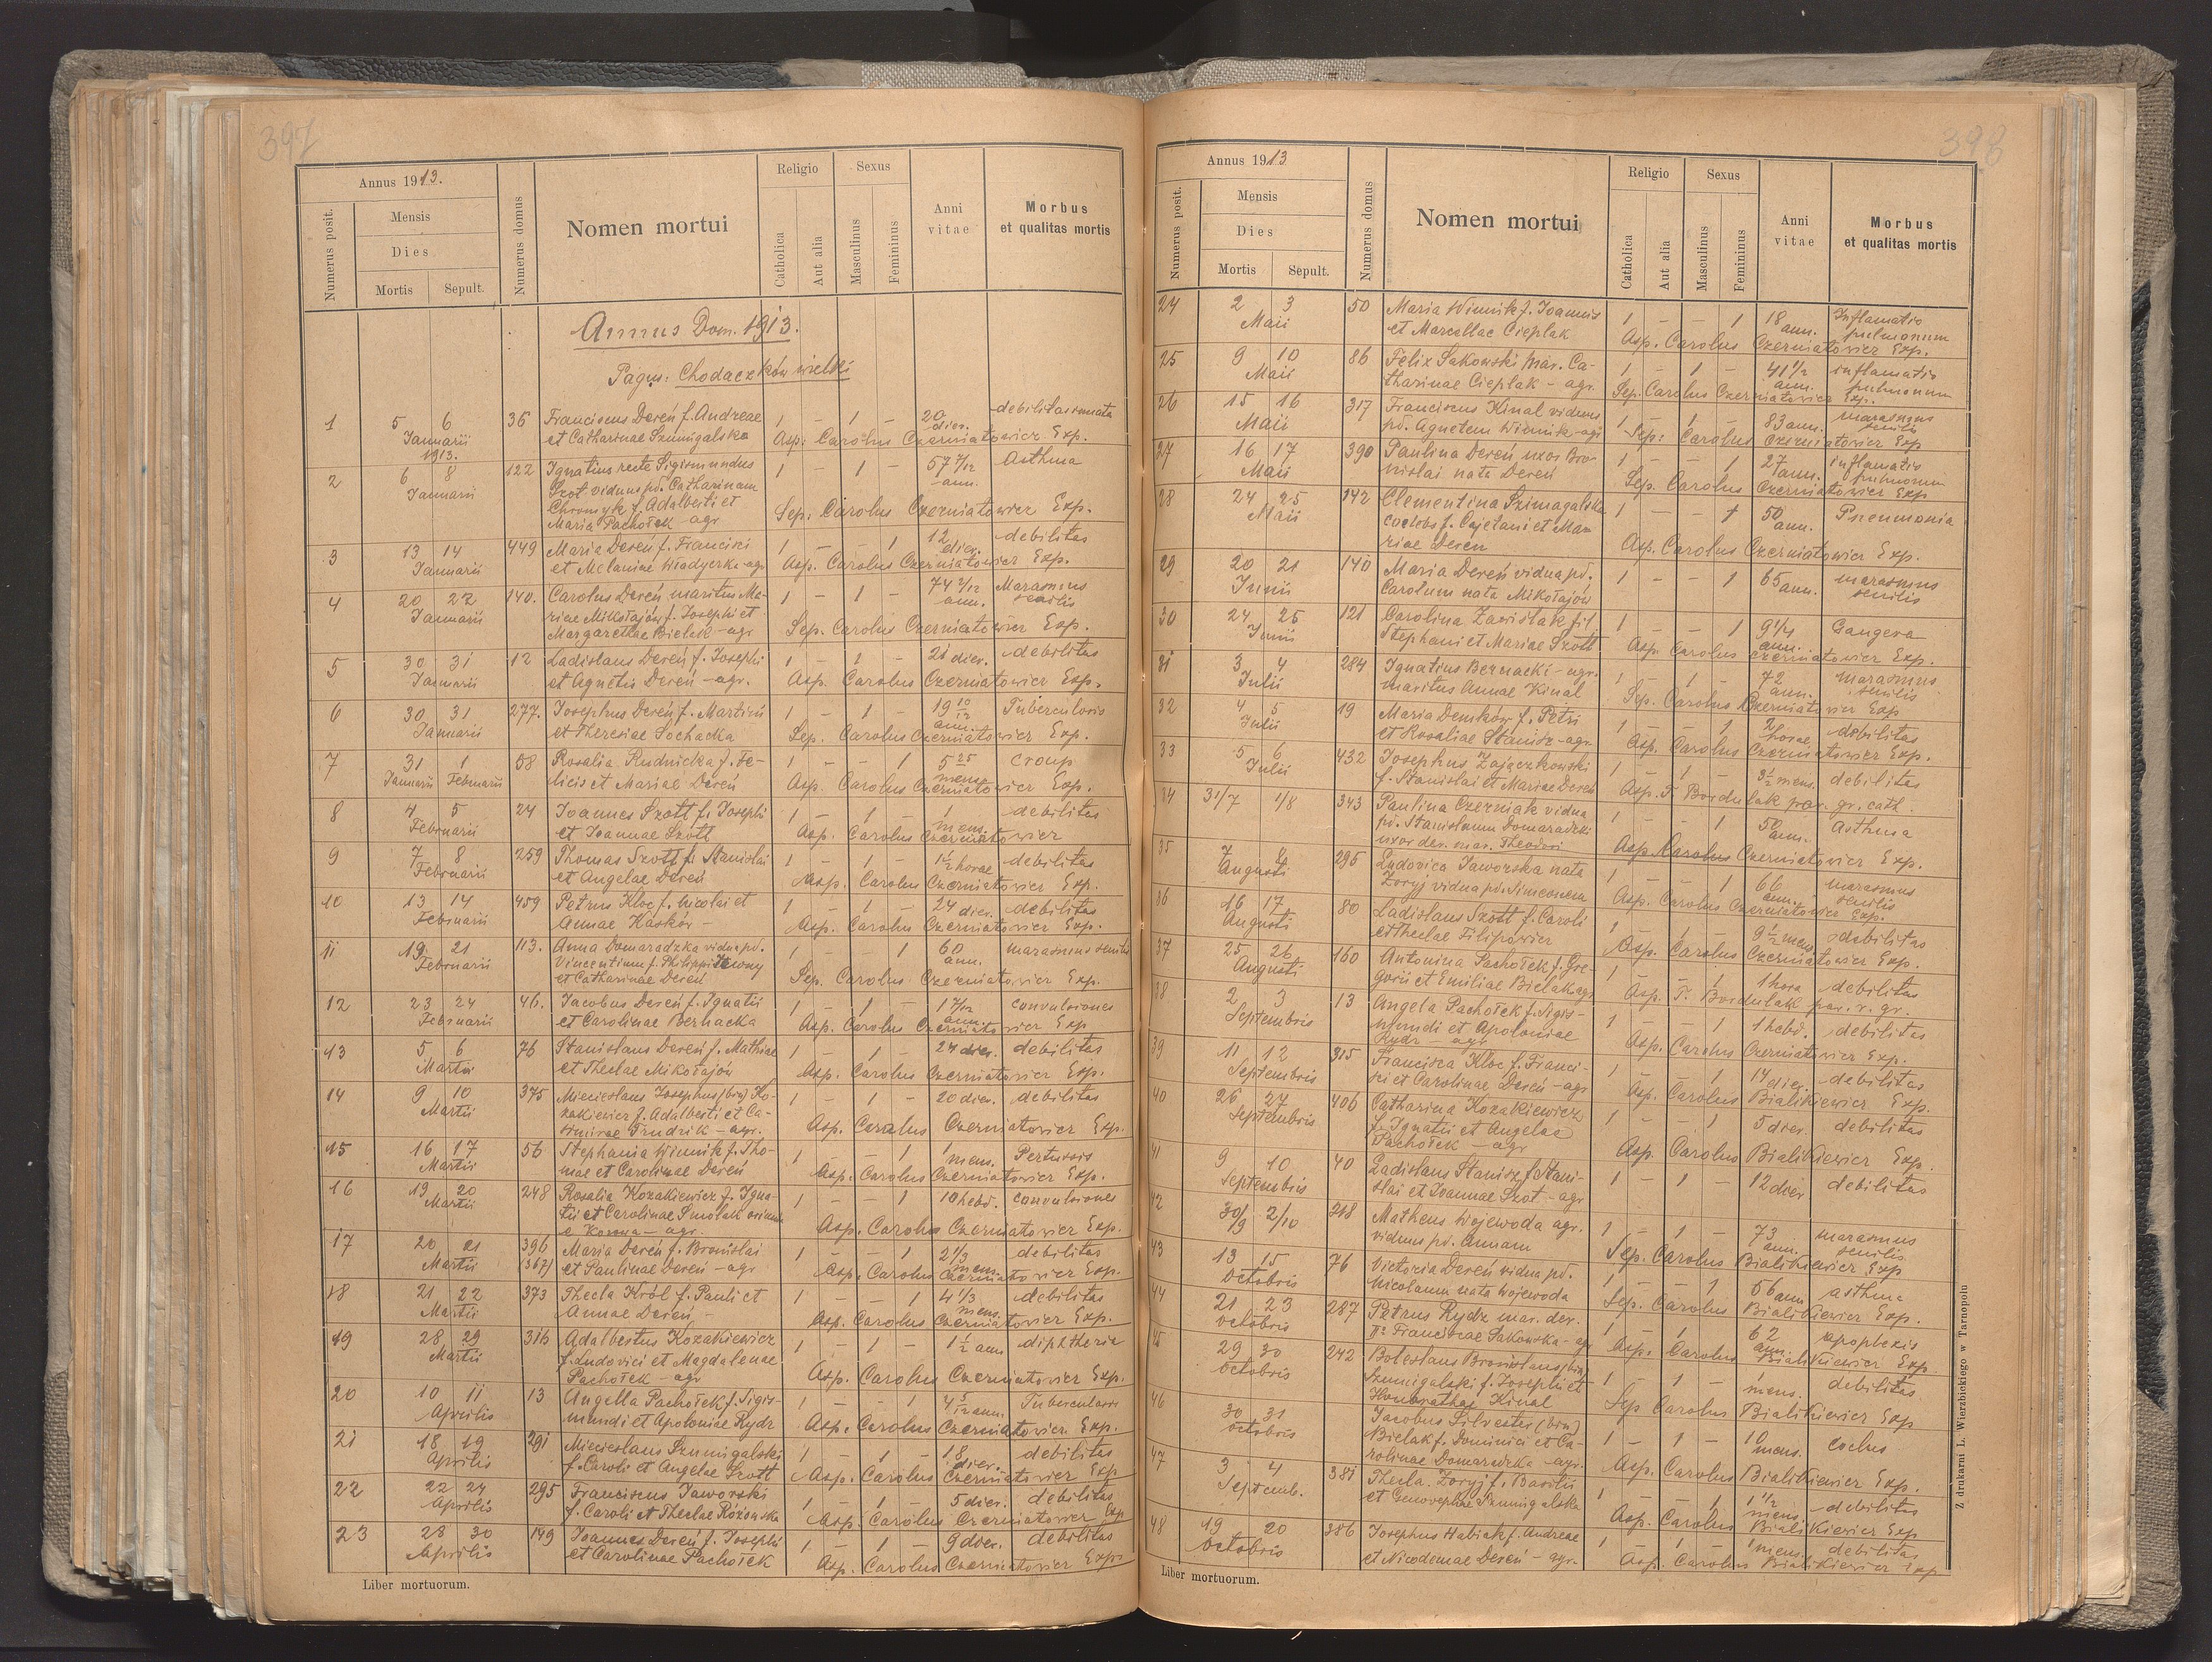 397
Annus 1913.
Numerus posit.
Mensis
Dies
Mortis Sepult.
Numerus domus
Nomen mortui
Religio
Catholica
Aut alia
Sexus
Masculinus
Femininus
Anni vitae
Morbus et qualitas mortis
Annus Dom. 1913.
Pagus: Chodaczków wielki
1 5 6 Januarii 1913. 36 Franciscus Dereń f. Andreae 1 – 1 – 20 dier. debilitas innata
et Catharinae Szumigalska Asp: Carolus Czerniatowicz Exp.
2 6 8 Januarii 122 Ignatius recte Sigismundus 1 – 1 – 57 7/12 ann. Asthma
Szot viduus pd. Catharinam
Chromyk f. Adalberti et
Maria Pachołek agr Sep: Carolus Czerniatowicz Exp.
3 13 14 Januarii 449 Maria Dereń f. Francisci 1 – – 1 12 dier. debilitas
et Melaniae Wiadyerka agr Asp. Carolus Czerniatowicz Exp.
4 20 22 Januarii 140. Carolus Dereń maritus Ma- 1 – 1 – 74 2/12 ann. Marasmus senilis
riae Mikołajów f. Josephi et
Margarethae Bielak – agr Sep. Carolus Czerniatowicz Exp.
5 30 31 Januarii 12 Ladislaus Dereń f. Josephi 1 – 1 – 21 dier. debilitas
et Agnetis Dereń – agr. Asp. Carolus Czerniatowicz Exp.
6 30 31 Januarii 277. Josephus Dereń f. Martini 1 – 1 – 19 10/12 ann. Tuberculosis
et Theresiae Sochacka Sep. Carolus Czerniatowicz Exp.
7 31 1 Januarii Februarii 58 Rosalia Rudnicka f. Fe- 1 – – 1 5 25 mens. croup
licis et Mariae Dereń Asp. Carolus Czerniatowicz Exp.
8 4 5 Februarii 24 Joannes Szott f. Josephi 1 – 1 1 mens. debilitas
et Joannae Szott Asp. Carolus Czerniatowicz
9 7 8 Februarii 259 Thomas Szott f. Stanislai 1 – 1 – 1 1/2 horae debilitas
et Angelae Dereń Asp. Carolus Czerniatowicz Exp.
10 13 14 Februarii 459 Petrus Kloc f. Nicolai et 1 – 1 – 24 dier. debilitas
Annae Haskóv – Asp. Carolus Czerniatowicz Exp.
11 19 21 Februarii 113. Anna Domaradzka vidua pd. 1 – 1 60 ann. marasmus senilis
Vincentium f. Philippi
et Catharinae Dereń Sep. Carolus Czerniatowicz Exp.
12 23 24 Februarii 46. Jacobus Dereń f. Ignatii 1 – 1 – 1 7/12 ann. convulsiones
et Carolinae Bernacka Asp. Carolus Czerniatowicz Exp
13 5 6 Martii 76 Stanislaus Dereń f. Mathiae 1 – 1 – 24 dier. debilitas
et Theclae Mikołajów Asp. Carolus Czerniatowicz Exp.
14 9 10 Martii 375 Miecieslaus Josephus (bin) Ko- 1 – 1 – 20 dier. debilitas
zakiewicz f. Adalberti et Ca-
simirae Trudzik – agr. Asp. Carolus Czerniatowicz Exp.
15 16 17 Martii 56 Stephania Winnik f. Tho- 1 – 1 1 mens. Pertussis
mae et Carolinae Dereń Asp. Carolus Czerniatowicz Exp.
16 19 20 Martii 248 Rosalia Kozakiewicz f. Igna- 1 – – 1 10 hebd. convulsiones
tii et Carolinae Smolak
e Kozowa – agr. Asp. Carolus Czerniatowicz Exp.
17 20 21 Martii 396 (367) Maria Dereń f. Bronislai 1 – – 1 2 1/3 mens. debilitas
et Paulinae Dereń – agr Asp. Carolus Czerniatowicz Exp.
18 21 22 Martii 373 Thecla Król f. Pauli et 1 – – 1 4 1/3 mens. debilitas
Annae Dereń – Asp. Carolus Czerniatowicz Exp.
19 28 29 Martii 316 Adalbertus Kozakiewicz 1 – 1 – 1 1/2 ann diphtheria
f. Ludovici et Magdalenae
Pachołek – agr Asp. Carolus Czerniatowicz Exp.
20 10 11 Aprilis 13 Angella Pachołek f. Sigis- 1 – – 1 4 5/12 ann. Tuberculosis
mundi et Apoloniae Rydz Asp. Carolus Czerniatowicz Exp.
21 18 19 Aprilis 291 Miecieslaus Szumigalski 1 – 1 – 18 dier. debilitas
f. Caroli et Angelae Szott Asp. Carolus Czerniatowicz Exp
22 22 24 Aprilis 295 Franciscus Jaworski 1 – 1 – 5 dier. debilitas
f. Caroli et Theclae Różowska Asp. Carolus Czerniatowicz Exp
23 28 30 Aprilis 149 Joannes Dereń f. Josephi 1 – 1 – 9 dier. debilitas
et Carolinae Pachołek Asp. Carolus Czerniatowicz Exp.
Liber mortuorum.
398
Annus 1913
Numerus posit.
Mensis
Dies
Mortis Sepult.
Numerus domus
Nomen mortui
Religio
Catholica
Aut alia
Sexus
Masculinus
Femininus
Anni vitae
Morbus et qualitas mortis
24 2 3 Maii 50 Maria Winnik f. Joannis 1 – – 1 18 ann. Inflamatio pulmonum
et Marcellae Cieplak Asp. Carolus Czerniatowicz Exp.
25 9 10 Maii 86 Felix Sakowski mar. Ca- 1 – 1 – 41 1/2 ann. inflamatio pulmonum
tharinae Cieplak – agr. Sep. Carolus Czerniatowicz Exp.
26 15 16 Maii 317 Franciscus Kinal viduus 1 – 1 83 ann. marasmus senilis
pd. Agnetem Winnik – agr Sep: Carolus Czerniatowicz Exp
27 16 17 Maii 390 Paulina Dereń uxor Bro- 1 – – 1 27 ann. inflamatio pulmonum
nislai nata Dereń Sep. Carolus Czerniatowicz Exp
28 24 25 Maii 142 Clementina Szimagalska 1 – – 1 50 ann. Pneumonia
coelebs f. Cajetani et Ma-
riae Dereń Asp. Carolus Czerniatowicz Exp.
29 20 21 Junii 140 Maria Dereń vidua pd. 1 – – 1 65 ann. marasmus senilis
Carolum nata Mikołajów
30 24 25 Junii 121 Carolina Zawiślak fil. 1 – – 1 9 1/4 ann. Gangera
Stephani et Mariae Szott Asp. Carolus Czerniatowicz Exp.
31 3 4 Julii 284 Ignatius Bernacki – agr. 1 – 1 – 72 ann. marasmus senilis
maritus Annae Kinal Sep. Carolus Czerniatowicz Exp
32 4 5 Julii 19 Maria Demków f. Petri 1 – – 1 2 horae debilitas
et Rosaliae Stanisz – agr. Asp. Carolus Czerniatowicz Exp.
33 5 6 Julii 432 Josephus Zajączkowski 1 – 1 – 3 1/2 mens. debilitas
f. Stanislai et Mariae Dereń Asp. T. Bordulak par. gr. cath.
34 31/7 1/8 343 Paulina Czerniak vidua 1 – – 1 50 ann. Asthma
pd. Stanislaum Domaradzki
uxor der. mar. Theodori Asp. Carolus Czerniatowicz Exp.
35 7 8 Augusti 295 Ludovica Jaworska nata 1 – – 1 66 ann. marasmus senilis
Zoryj vidua pd. Simeonem Asp. Carolus Czerniatowicz Exp.
36 16 17 Augusti 80 Ladislaus Szott f. Caroli 1 – 9 1/2 mens. debilitas
et Theclae Filipowicz Asp. Carolus Czerniatowicz Exp.
37 25 26 Augusti 160 Antonina Pachołek f. Gre- 1 – – 1 1 hora debilitas
gorii et Emiliae Bielak agr Asp. T. Bordulak par. r. gr.
38 2 3 Septembris 13 Angela Pachołek f. Sigis- 1 – – 1 1 hebd. debilitas
mundi et Apoloniae
Rydz – agr Asp. Carolus Czerniatowicz Exp.
39 11 12 Septembris 315 Francisca Kloc f. Franci- 1 – – 1 14 dier. debilitas
sci et Carolinae Dereń – agr Asp. Carolus Bialikiewicz Exp.
40 26 27 Septembris 406 Catharina Kozakiewicz 1 – – 1 5 dier. debilitas
f. Ignatii et Angelae
Pachołek – agr Asp. Carolus Bialikiewicz Exp.
41 9 10 Septembris 40 Ladislaus Stanisz f. Stani- 1 – 1 – 12 dier debilitas
slai et Joannae Szot – agr
42 30/9 2/10 218 Matheus Wojewoda agr. 1 – 1 – 73 ann. marasmus senilis
viduus pd. Annam Sep. Carolus Bialikiewicz Exp
43 13 15 Octobris 76 Victoria Dereń vidua pd. 1 – – 1 56 ann asthma
Nicolaum nata Wojewoda Sep. Carolus Bialikiewicz Exp.
44 21 23 Octobris 287 Petrus Rydz mar. der. 1 – 1 – 62 ann. apoplexis
Franciscae Sakowska – agr Asp. Carolus Bialikiewicz Exp
45 29 30 Octobris 242 Boleslaus Bronislaus (bin) 1 – 1 – 1 mens. debilitas
Szumigalski f. Josephi et
Honorathae Kinal Sep Carolus Bialikiewicz Exp
46 30 31 Octobris Jacobus Silvester (bin) 1 – 1 – 10 mens.
Bielak f. Dominici et Ca-
rolinae Domaradzka – agr. Asp. Carolus Bialikiewicz Exp.
47 3 4 Septemb. 381 Thecla Zoryj f. Basilii 1 – – 1 1 1/2 mens. debilitas
et Genovephae Szumigalska Asp. Carolus Bialikiewicz Exp
48 19 20 Octobris 386 Josephus Habiak f. Andreae 1 1 1 mens. debilitas
et Nicodemae Dereń – agr. Asp. Carolus Bialikiewicz Exp
Liber mortuorum.
Z drukarni L. Wierzbickiego w Tarnopolu